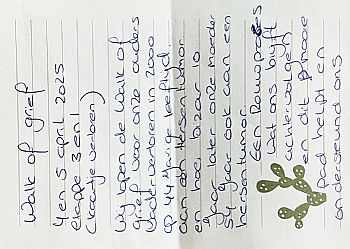 Walk of grief
4 en 5 april 2025
etappe 3 en 1
(kaartje verloren)
Wij lopen de walk of
grief voor onze ouders
Vader verloren in 2000
op 44 jarige leeftijd
aan een hersentumor.
en hoe bizar 10
jaar later onze moeder
54 jaar ook aan een
hersentumor.
Een Rouwproces
wat ons blijft
achtervolgen
en dit mooie
pad helpt en
ondersteund ons